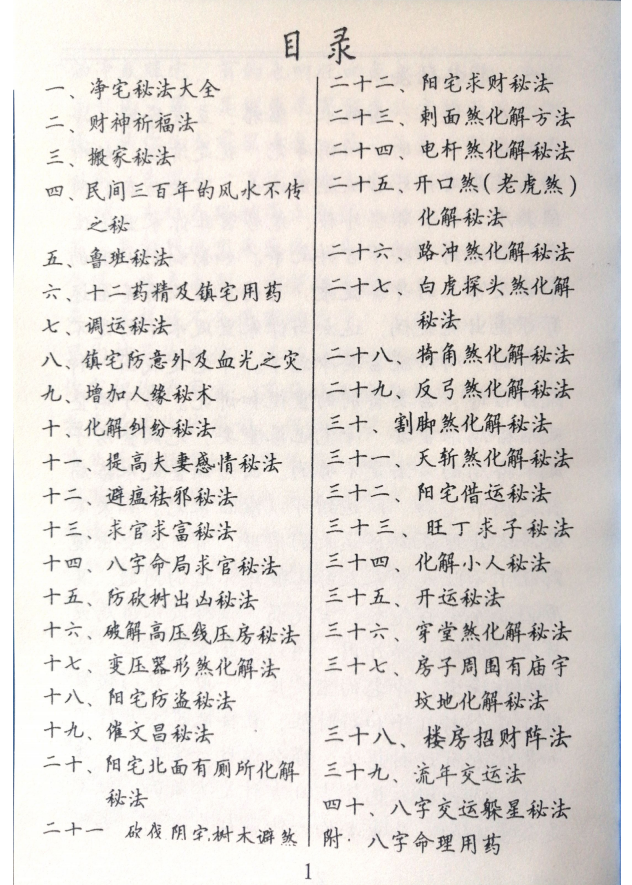 目录
一、净宅秘法大全
二、财神祈福法
三、搬家秘法
四、民间三百年的风水不传
之秘
五、鲁班秘法
六、十二药精及镇宅用药
七、调运秘法
八、镇宅防意外及血光之灾
九、增加人缘秘术
十、化解纠纷秘法
十一、提高夫妻感情秘法
十二、避瘟祛邪秘法
十三 求官求富秘法
十四、八字命局求官秘法
十五、防砍树出凶秘法
十六、破解高压线压房秘法
十七、变压器形煞化解法
十八、阳宅防盗秘法
十九、催文昌秘法
二十、阳宅北面有厕所化解
秘法
二十一 砍伐阴宅树木避煞
二十二、阳宅求财秘法
二十三、刺面煞化解方法
二十四、电杆煞化解秘法
二十五、开口煞(老虎煞)
化解秘法
二十六、路冲煞化解秘法
二十七、白虎探头煞化解
秘法
二十八、犄角煞化解秘法
二十九、反弓煞化解秘法
三十、割脚煞化解秘法
三十一、天斩煞化解秘法
三十二、阳宅借运秘法
三十三、旺丁求子秘法
三十四、化解小人秘法
三十五、开运秘法
三十六、穿堂煞化解秘法
三十七、房子周围有庙宇
坟地化解秘法
三十八、楼房招财阵法
三十九、流年交运法
四十、八字交运躲星秘法
附·八字命理用药
1